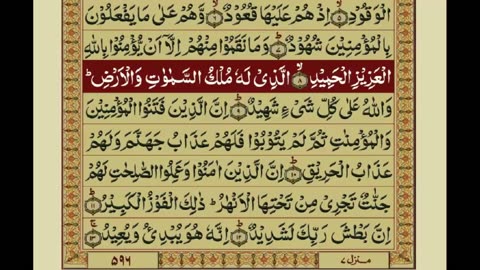 الْوَقُوْدِ ۙ﴿۵﴾ اِذْ هُمْ عَلَيْهَا قُعُوْدٌ ۙ﴿۶﴾ وَّهُمْ عَلٰى مَا يَفْعَلُوْنَ
بِالْمُؤْمِنِيْنَ شُهُوْدٌ ؕ﴿۷﴾ وَمَا نَقَمُوْا مِنْهُمْ اِلَّاۤ اَنْ يُّؤْمِنُوْا بِاللّٰهِ
الْعَزِيْزِ الْحَمِيْدِ ۙ﴿۸﴾ الَّذِىْ لَهٗ مُلْكُ السَّمٰوٰتِ وَالْاَرْضِ ؕ
وَاللّٰهُ عَلٰى كُلِّ شَىْءٍ شَهِيْدٌ ؕ﴿۹﴾ اِنَّ الَّذِيْنَ فَتَنُوا الْمُؤْمِنِيْنَ
وَالْمُؤْمِنٰتِ ثُمَّ لَمْ يَتُوْبُوْا فَلَهُمْ عَذَابُ جَهَنَّمَ وَلَهُمْ
عَذَابُ الْحَرِيْقِ ؕ﴿۱۰﴾ اِنَّ الَّذِيْنَ اٰمَنُوْا وَعَمِلُوا الصّٰلِحٰتِ لَهُمْ
جَنّٰتٌ تَجْرِىْ مِنْ تَحْتِهَا الْاَنْهٰرُ ؕ ذٰلِكَ الْفَوْزُ الْكَبِيْرُ ؕ﴿۱۱﴾
اِنَّ بَطْشَ رَبِّكَ لَشَدِيْدٌ ؕ﴿۱۲﴾ اِنَّهٗ هُوَ يُبْدِئُ وَيُعِيْدُ ۚ﴿۱۳﴾
منزل ۷
۵۹۶